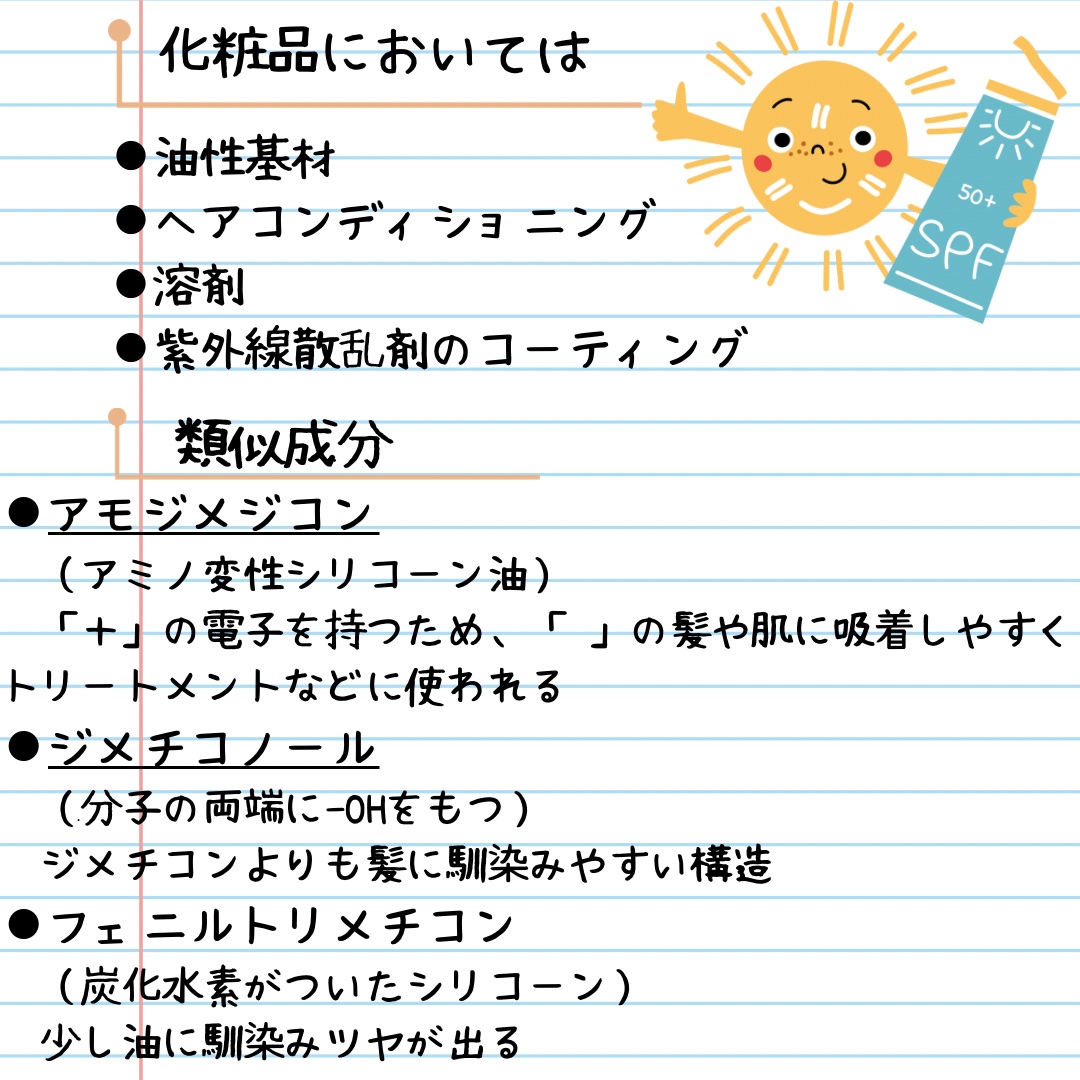 化粧品においては
●油性基材
●ヘアコンディショニング
●溶剤
●紫外線散乱剤のコーティング
50+
SPF
類似成分
●アモジメジコン
(アミノ変性シリコーン油)
「＋」の電子を持つため、「 」の髪や肌に吸着しやすく
トリートメントなどに使われる
●ジメチコノール
(分子の両端に-OHをもつ)
ジメチコンよりも髪に馴染みやすい構造
●フェニルトリメチコン
(炭化水素がついたシリコーン)
少し油に馴染みツヤが出る